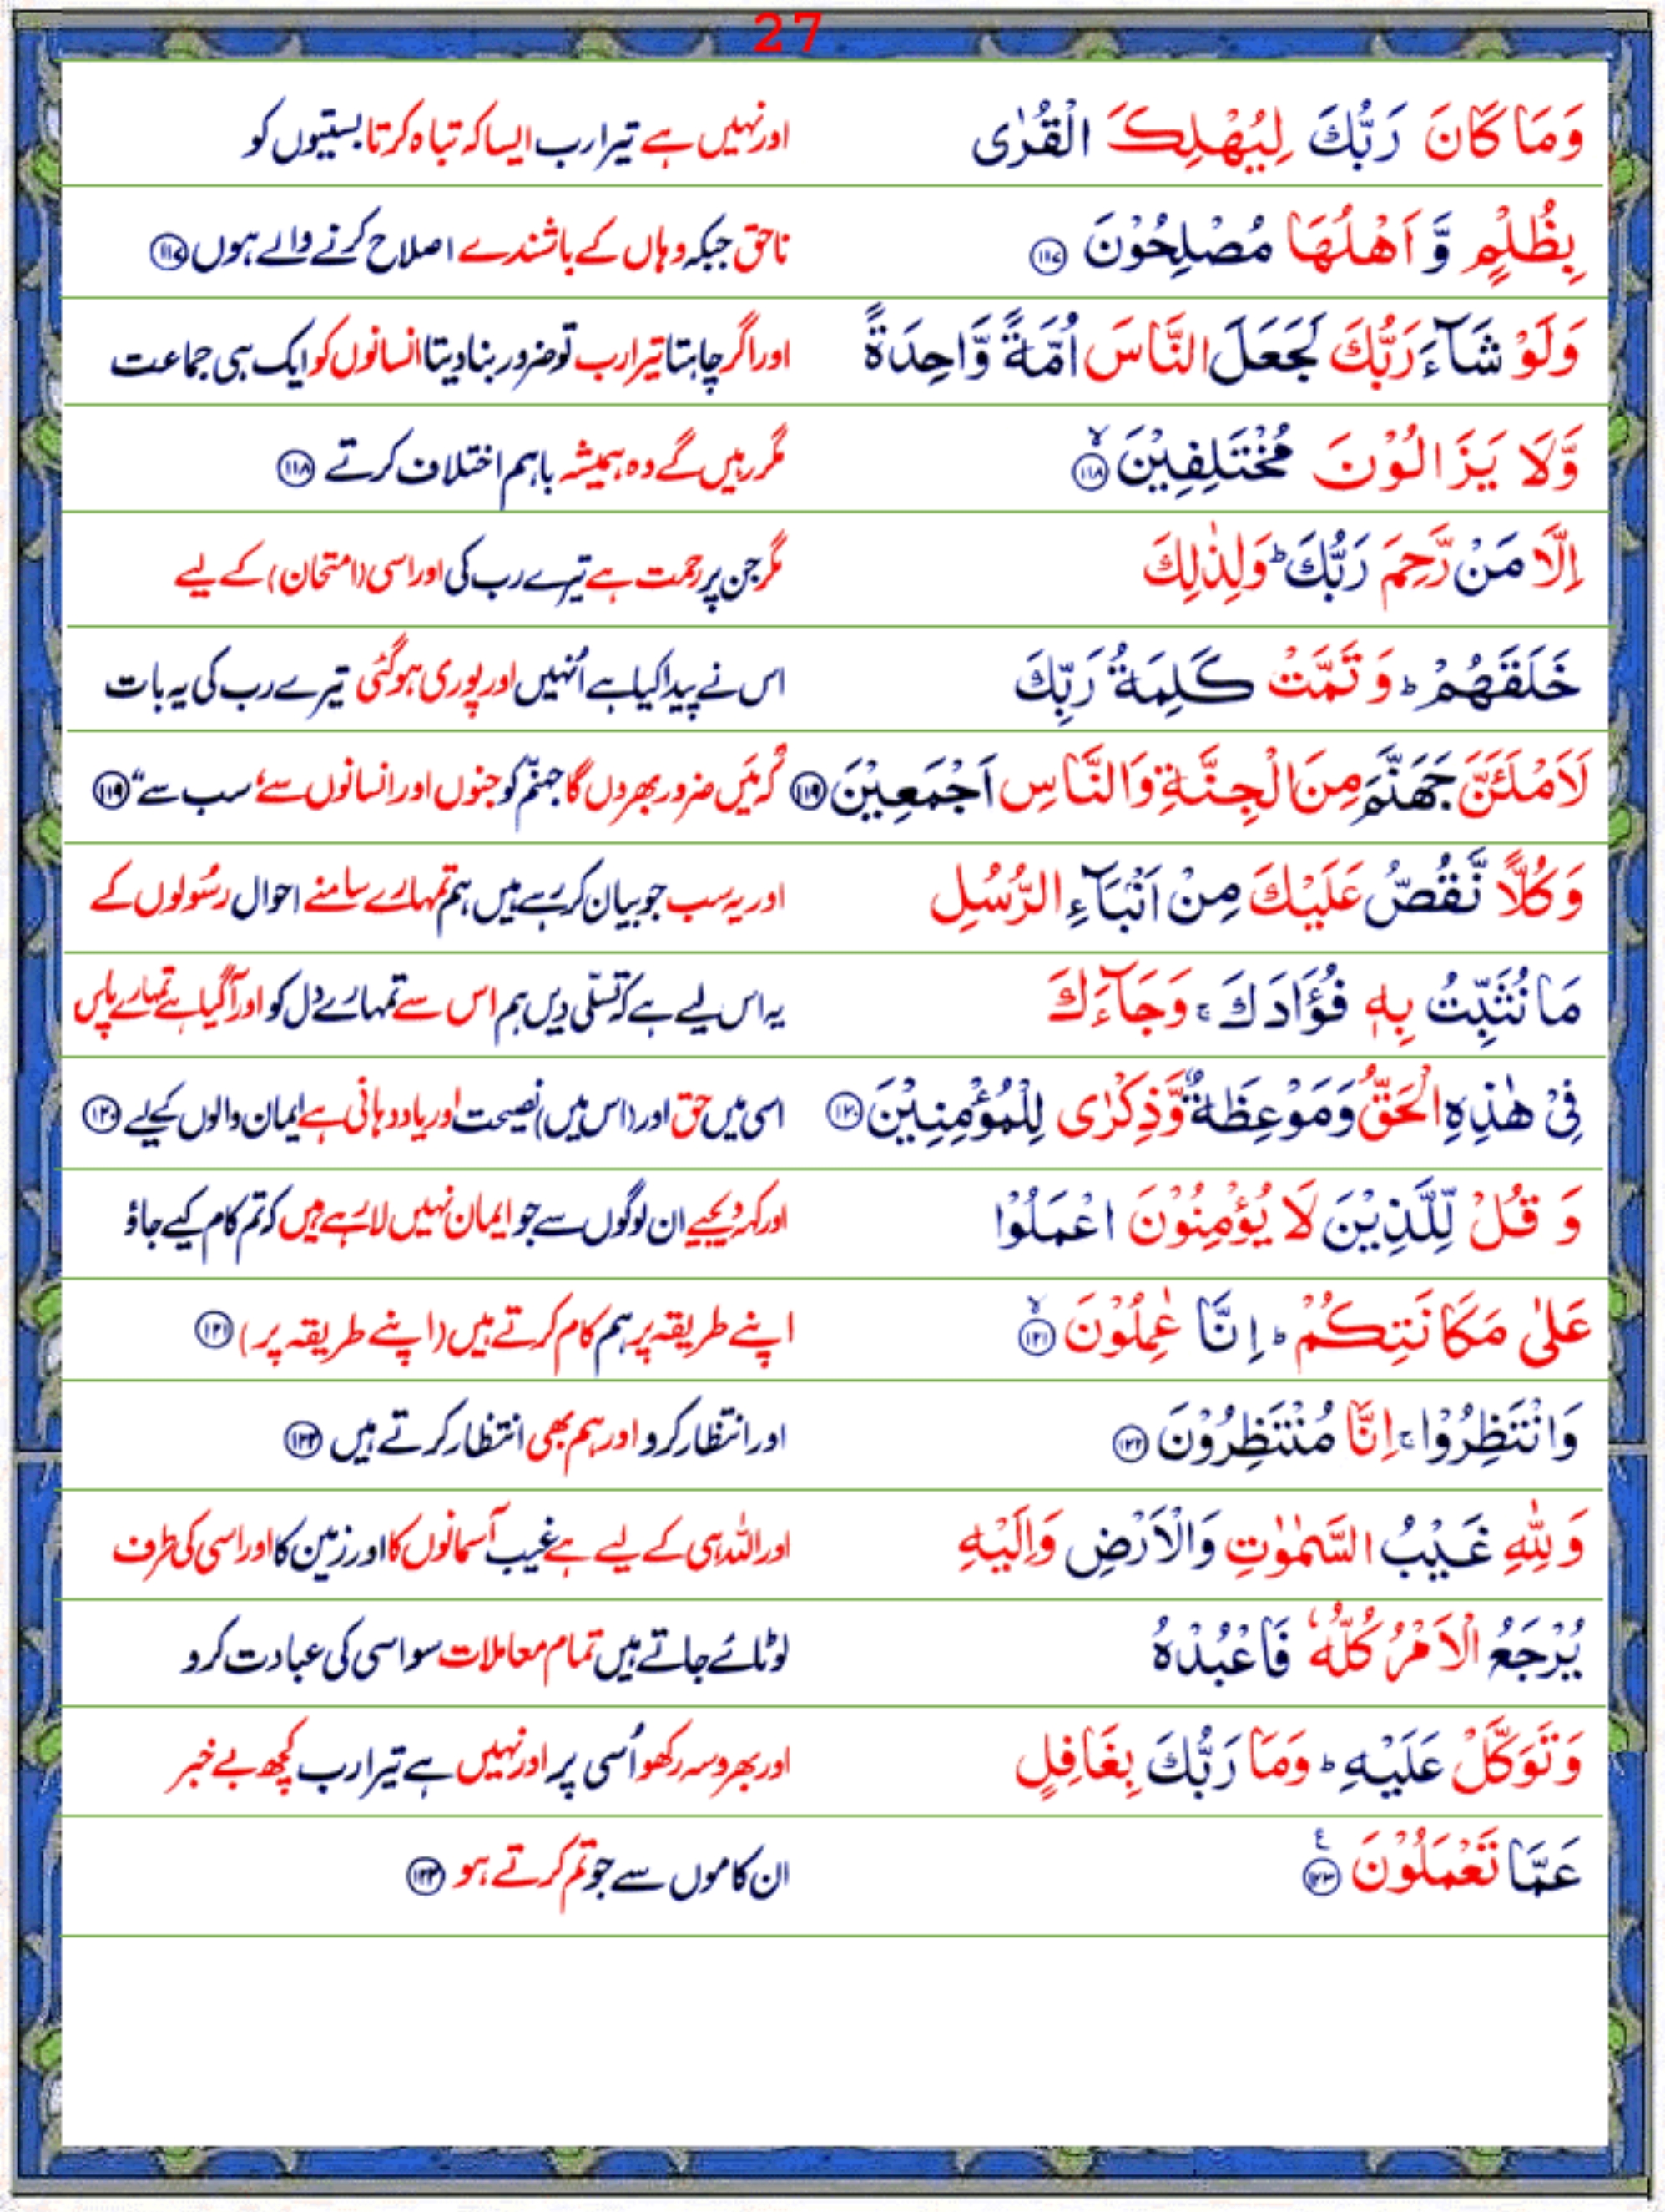 27
وَمَا كَانَ رَبُّكَ لِيُهْلِكَ الْقُرٰى اور نہیں ہے تیرا رب ایسا کہ تباہ کرتا بستیوں کو
بِظُلْمٍ وَّاَهْلُهَا مُصْلِحُوْنَ ﴿۱۱۷﴾ ناحق جبکہ وہاں کے باشندے اصلاح کرنے والے ہوں ﴿۱۱۷﴾
وَلَوْ شَآءَ رَبُّكَ لَجَعَلَ النَّاسَ اُمَّةً وَّاحِدَةً اور اگر چاہتا تیرا رب تو ضرور بنا دیتا انسانوں کو ایک ہی جماعت
وَّلَا يَزَالُوْنَ مُخْتَلِفِيْنَ ۙ﴿۱۱۸﴾ مگر رہیں گے وہ ہمیشہ باہم اختلاف کرتے ﴿۱۱۸﴾
اِلَّا مَنْ رَّحِمَ رَبُّكَ ؕ وَلِذٰلِكَ مگر جن پر رحمت ہے تیرے رب کی اور اسی (امتحان) کے لیے
خَلَقَهُمْ ؕ وَتَمَّتْ كَلِمَةُ رَبِّكَ اس نے پیدا کیا ہے اُنہیں اور پوری ہوگئی تیرے رب کی یہ بات
لَاَمْلَئَنَّ جَهَنَّمَ مِنَ الْجِنَّةِ وَالنَّاسِ اَجْمَعِيْنَ ﴿۱۱۹﴾ کہ مَیں ضرور بھر دوں گا جہنّم کو جنوں اور انسانوں سے، سب سے“ ﴿۱۱۹﴾
وَكُلًّا نَّقُصُّ عَلَيْكَ مِنْ اَنْۢبَآءِ الرُّسُلِ اور یہ سب جو بیان کر رہے ہیں ہم تمہارے سامنے احوال رسُولوں کے
مَا نُثَبِّتُ بِهٖ فُؤَادَكَ ۚ وَجَآءَكَ یہ اس لیے ہے کہ تسلّی دیں ہم اس سے تمہارے دل کو اور آگیا ہے تمہارے پاس
فِىْ هٰذِهِ الْحَقُّ وَمَوْعِظَةٌ وَّذِكْرٰى لِلْمُؤْمِنِيْنَ ﴿۱۲۰﴾ اسی میں حق اور (اس میں) نصیحت اور یاددہانی ہے ایمان والوں کے لیے ﴿۱۲۰﴾
وَقُلْ لِّلَّذِيْنَ لَا يُؤْمِنُوْنَ اعْمَلُوْا اور کہہ دیجیے ان لوگوں سے جو ایمان نہیں لا رہے ہیں کہ تم کام کیے جاؤ
عَلٰى مَكَانَتِكُمْ ؕ اِنَّا عٰمِلُوْنَ ۙ﴿۱۲۱﴾ اپنے طریقہ پر ہم کام کرتے ہیں (اپنے طریقہ پر) ﴿۱۲۱﴾
وَانْتَظِرُوْا ۚ اِنَّا مُنْتَظِرُوْنَ ﴿۱۲۲﴾ اور انتظار کرو اور ہم بھی انتظار کرتے ہیں ﴿۱۲۲﴾
وَلِلّٰهِ غَيْبُ السَّمٰوٰتِ وَالْاَرْضِ وَاِلَيْهِ اور اللہ ہی کے لیے ہے غیب آسمانوں کا اور زمین کا اور اسی کی طرف
يُرْجَعُ الْاَمْرُ كُلُّهٗ فَاعْبُدْهُ لوٹائے جاتے ہیں تمام معاملات سو اسی کی عبادت کرو
وَتَوَكَّلْ عَلَيْهِ ؕ وَمَا رَبُّكَ بِغَافِلٍ اور بھروسہ رکھو اُسی پر اور نہیں ہے تیرا رب کچھ بے خبر
عَمَّا تَعْمَلُوْنَ ﴿۱۲۳﴾ ع ان کاموں سے جو تم کرتے ہو ﴿۱۲۳﴾